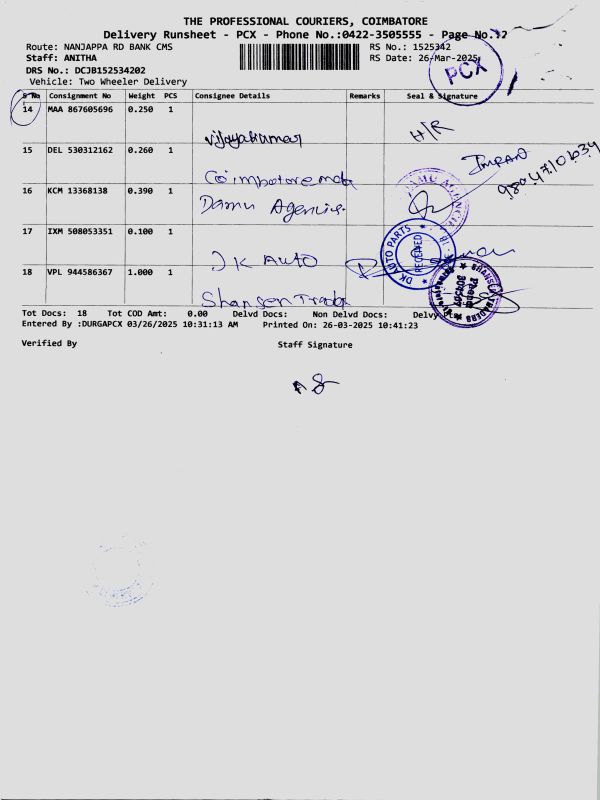 THE PROFESSIONAL COURIERS, COIMBATORE
Delivery Runsheet - PCX - Phone No.:0422-3505555 - Page No.:2
Route: NANJAPPA RD BANK CMS RS No.: 1525342
Staff: ANITHA RS Date: 26-Mar-2025
DRS No.: DCJB152534202
Vehicle: Two Wheeler Delivery
PCX
S No Consignment No Weight PCS Consignee Details Remarks Seal & Signature
14 MAA 867605696 0.250 1
vijayakumar H/R
15 DEL 530312162 0.260 1
Coimbatore
16 KCM 13368138 0.390 1
Damu Agencies
17 IXM 508053351 0.100 1
JK Auto
DK AUTO PARTS
RECEIVED
18 VPL 944586367 1.000 1
Shansen
TRADERS
Tot Docs: 18 Tot COD Amt: 0.00 Delvd Docs: Non Delvd Docs:
Entered By :DURGAPCX 03/26/2025 10:31:13 AM Printed On: 26-03-2025 10:41:23
Verified By Staff Signature